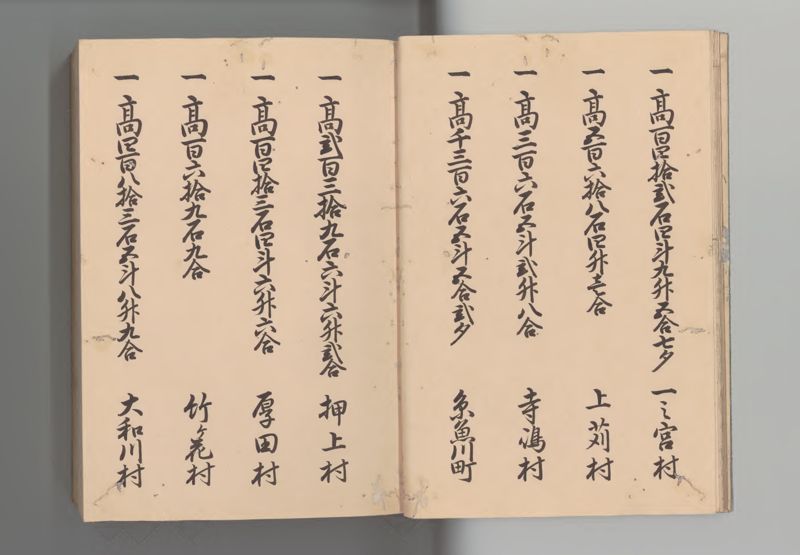 一 高百四拾弐石四斗九升五合七夕 一之宮村
一 高五百六拾八石四升壱合 上苅村
一 高三百六石五斗弐升八合 寺嶋村
一 高千三百六石五斗五合弐夕 糸魚川町
一 高弐百三拾九石六斗六升弐合 押上村
一 高百四拾三石四斗六升六合 厚田村
一 高百六拾九石九合 竹ヶ花村
一 高四百八拾三石五斗八升九合 大和川村